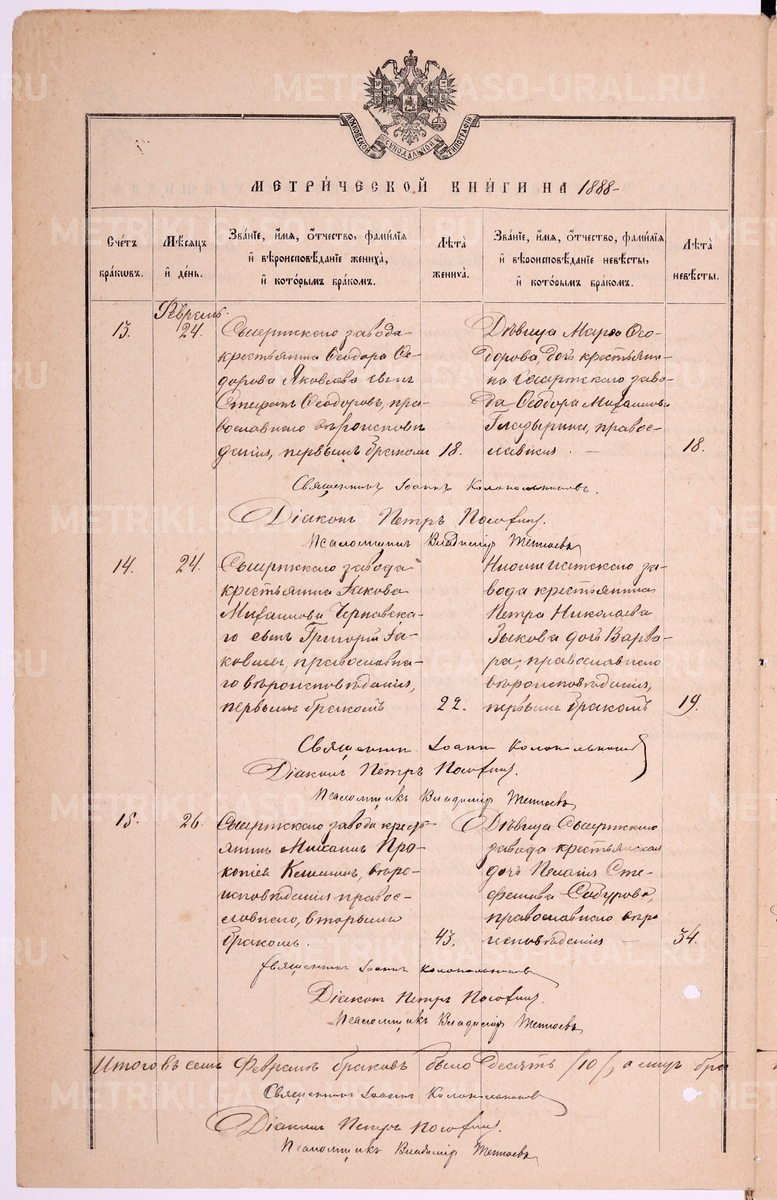 МЕТРИ́ЧЕСКОЙ КНИ́ГИ НА 1888
Сче́тъ бра́ковъ.
Мѣ́сяцъ и́ де́нь.
Зва́нїе, и́мя, о́тчество, фамилїя и́ вѣроисповѣ́данїе жениха̀, и́ кото́рымъ бра́комъ.
Лѣта̀ жениха̀.
Зва́нїе, и́мя, о́тчество, фамилїя и́ вѣроисповѣ́данїе невѣ́сты, и́ кото́рымъ бра́комъ.
Лѣта̀ невѣ́сты.
Февраль.
13.
24.
Сысертскаго завода
крестьянина Ѳеодора Ѳе-
дорова Яковлева сынъ
Стефанъ Ѳеодоровъ, пра-
вославнаго вѣроисповѣ
данія, первымъ бракомъ
18.
Дѣвица Марѳа Ѳео-
дорова, дочь крестьяни-
на Сысертскаго заво-
да Ѳеодора Михаилова
Глазырина, правос-
лавная
18.
Священникъ Іоаннъ Колокольниковъ.
Діаконъ Петръ
Псаломщикъ Владимиръ
14.
24.
Сысертскаго завода
крестьянина Іакова
Михаилова Чернавска-
го сынъ Григорій Іа-
ковлевъ, православна-
го вѣроисповѣданія,
первымъ бракомъ
22.
за-
вода крестьянина
Петра Николаева
Зыкова дочь Варва-
ра, православнаго
вѣроисповѣданія,
первымъ бракомъ
19.
Священникъ Іоаннъ Колокольниковъ
Діаконъ Петръ
Псаломщикъ Владимиръ
15.
26.
Сысертскаго завода крест
янинъ Михаилъ Про-
копіевъ вѣро-
исповѣданія правос-
лавнаго, вторымъ
бракомъ.
43.
Дѣвица Сысертскаго
завода крестьянская
дочь Пелагія Сте-
фанова Сабурова,
православнаго вѣро
исповѣданія
34.
Священникъ Іоаннъ Колокольниковъ
Діаконъ Петръ
Псаломщикъ Владимиръ
Итого въ семъ Февралѣ браковъ было десять /10/, а лицъ бра
Священникъ Іоаннъ Колокольниковъ
Діаконъ Петръ
Псаломщикъ Владимиръ
METRIKI.GASO-URAL.RU